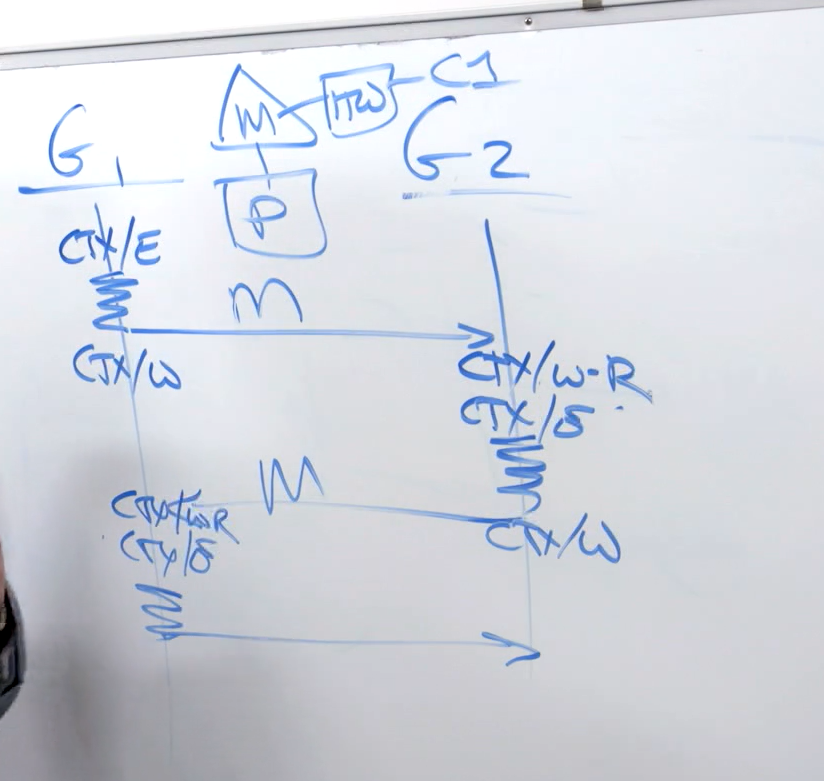 C1
M
HW
G1
G2
P
CTX/E
M
CTX/W
CTX/W-R
CTX/E
M
CTX/WR
CTX/E
CTX/W